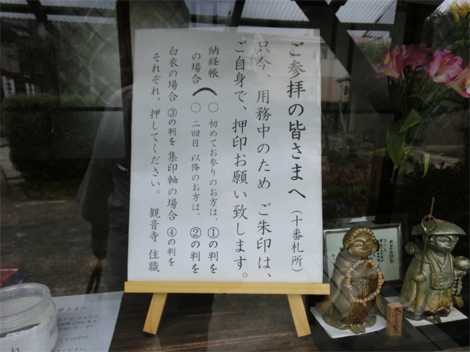 ご参拝の皆さまへ（十番札所）
只今、用務中のため ご朱印は、
ご自身で、押印お願い致します。
納経帳の場合（
○ 初めてお参りのお方は、①の判を
○ 二回目 以降のお方は、②の判を
白衣の場合 ③の判を 集印軸の場合 ④の判を
それぞれ、押してください。 観音寺 住職